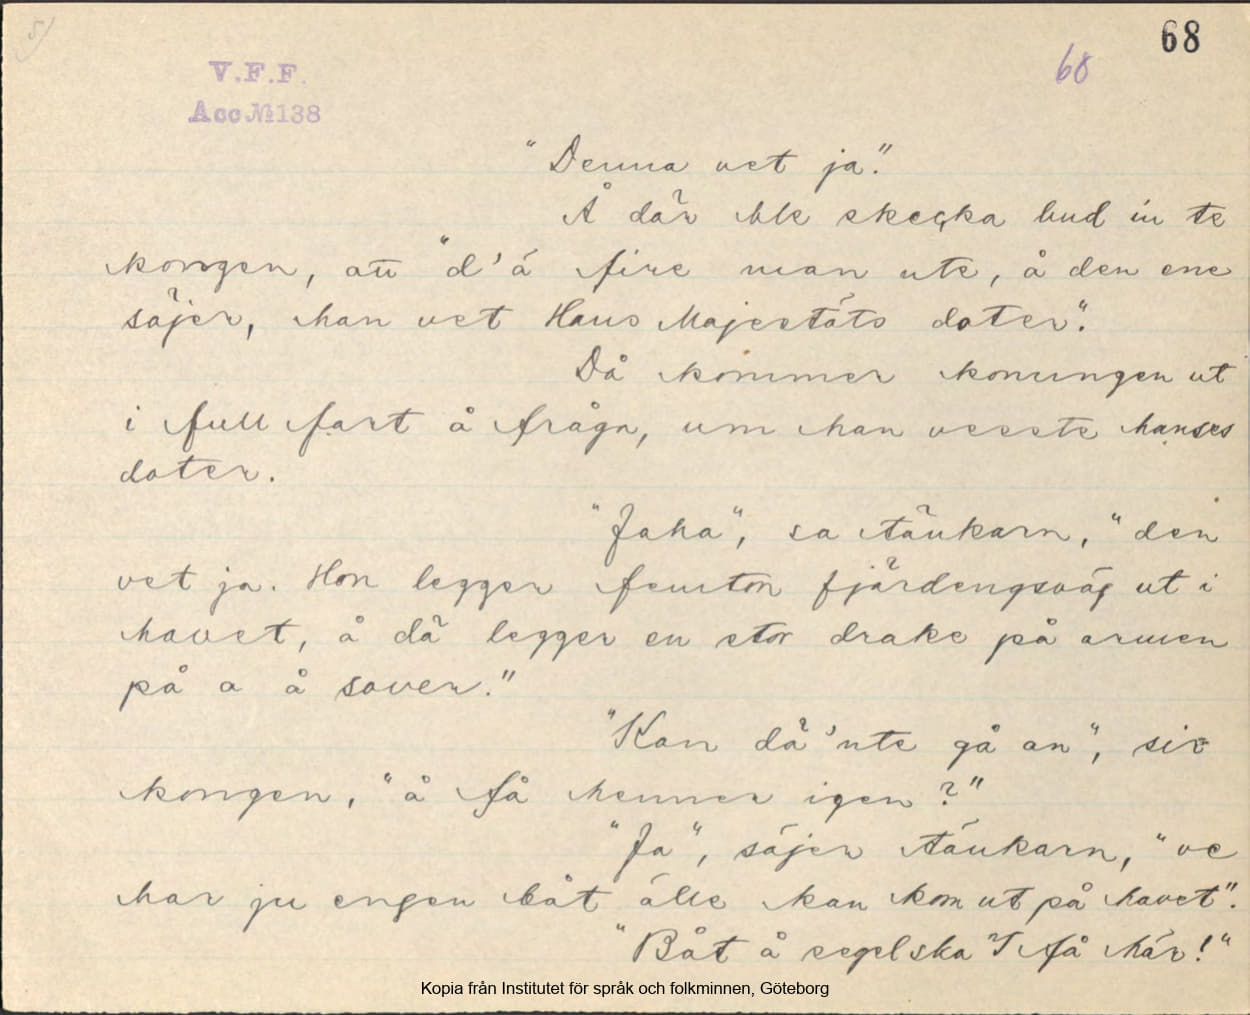 68
68
V.F.F.
Acc № 138
"Denna vet ja".
Å där ble skecka bud in te
kongen, att "d'á fire man ute, å den ene
säjer, han vet Hans Majestäts doter".
Då kommer konungen ut
i full fart å fråga, um han vesste hanses
doter.
"Jaha", sa tänkarn, "den
vet ja. Hon legger femton fjärdengsväg ut i
havet, å dä legger en stor drake på armen
på a å sover."
"Kan dä 'nte gå an", sir
kongen, "å få henner igen?"
"Ja", säjer tänkarn, "ve
har ju engen båt älle kan kom ut på havet".
"Båt å segel ska I få här!"
Kopia från Institutet för språk och folkminnen, Göteborg